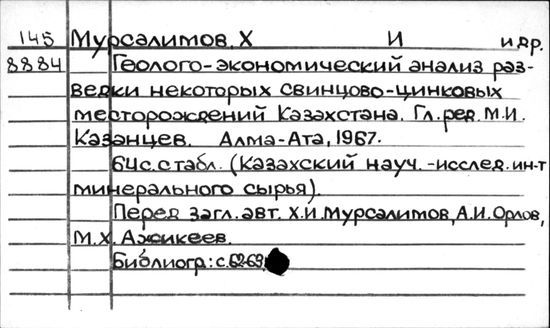 145 Мурсалимов, Х И и др.
8884 Геолого-экономический анализ раз-
ведки некоторых свинцово-цинковых
месторождений Казахстана. Гл. ред. М.И.
Казанцев. Алма-Ата, 1967.
64с. с табл. (Казахский науч.-исслед. ин-т
минерального сырья).
Перед загл. авт. Х.И. Мурсалимов, А.И. Орлов,
М.Х. Ажикеев.
Библиогр: с. 62-63.